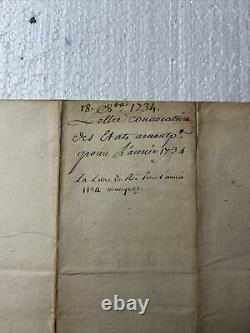 18. 8bre 1734.
Lettre convocatoire
des Etats
pour L'année 1734
La Lettre du Roi Pour L'année
1834 manque
ebay